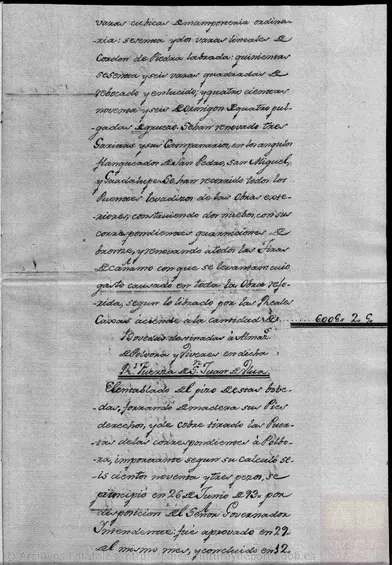 varas cubicas de mamposteria ordina-
ria: sesenta y dos varas lineales de
Cordon de Piedra labrada: quinientas
sesenta y seis varas quadradas de
rebocado y enlucido; y quatro cientas
noventa y seis de ormigon de quatro pul-
gadas de grueso. Se han renovado tres
Garitas y su Campanario, en los angulos
flanqueados de San Pedro, San Miguel,
y Guadalupe. Se han recorrido todos los
Puentes levadizos de las Obras exte-
riores, construiendo dos nuebos, con sus
correspondientes guarniciones de
bronze, y renovando à todos las Tiras
de Cañamo con que se levantan: cuio
gasto causado en toda la Obra refe-
rida, segun lo librado por las Reales
Caxas aciende a la cantidad de 6006. 2. 6
Bovedas destinadas à Almaz.
de Polvora y Viveres en dicha
Rl. Fuerza de Sn. Juan de Ulua.
El entablado del piso de estas bobe-
das, forrando de madera sus Pies
derechos, y de cobre tirado las Puer-
tas de las correspondientes à Polbo-
ra, importante segun su calculó se-
is cientos noventa y tres pesos, se
principió en 26 de Junio de 93. por
disposicion del Señor Governador
Intendente: fué aprovado en 29
del mismo mes, y concluido en 12.